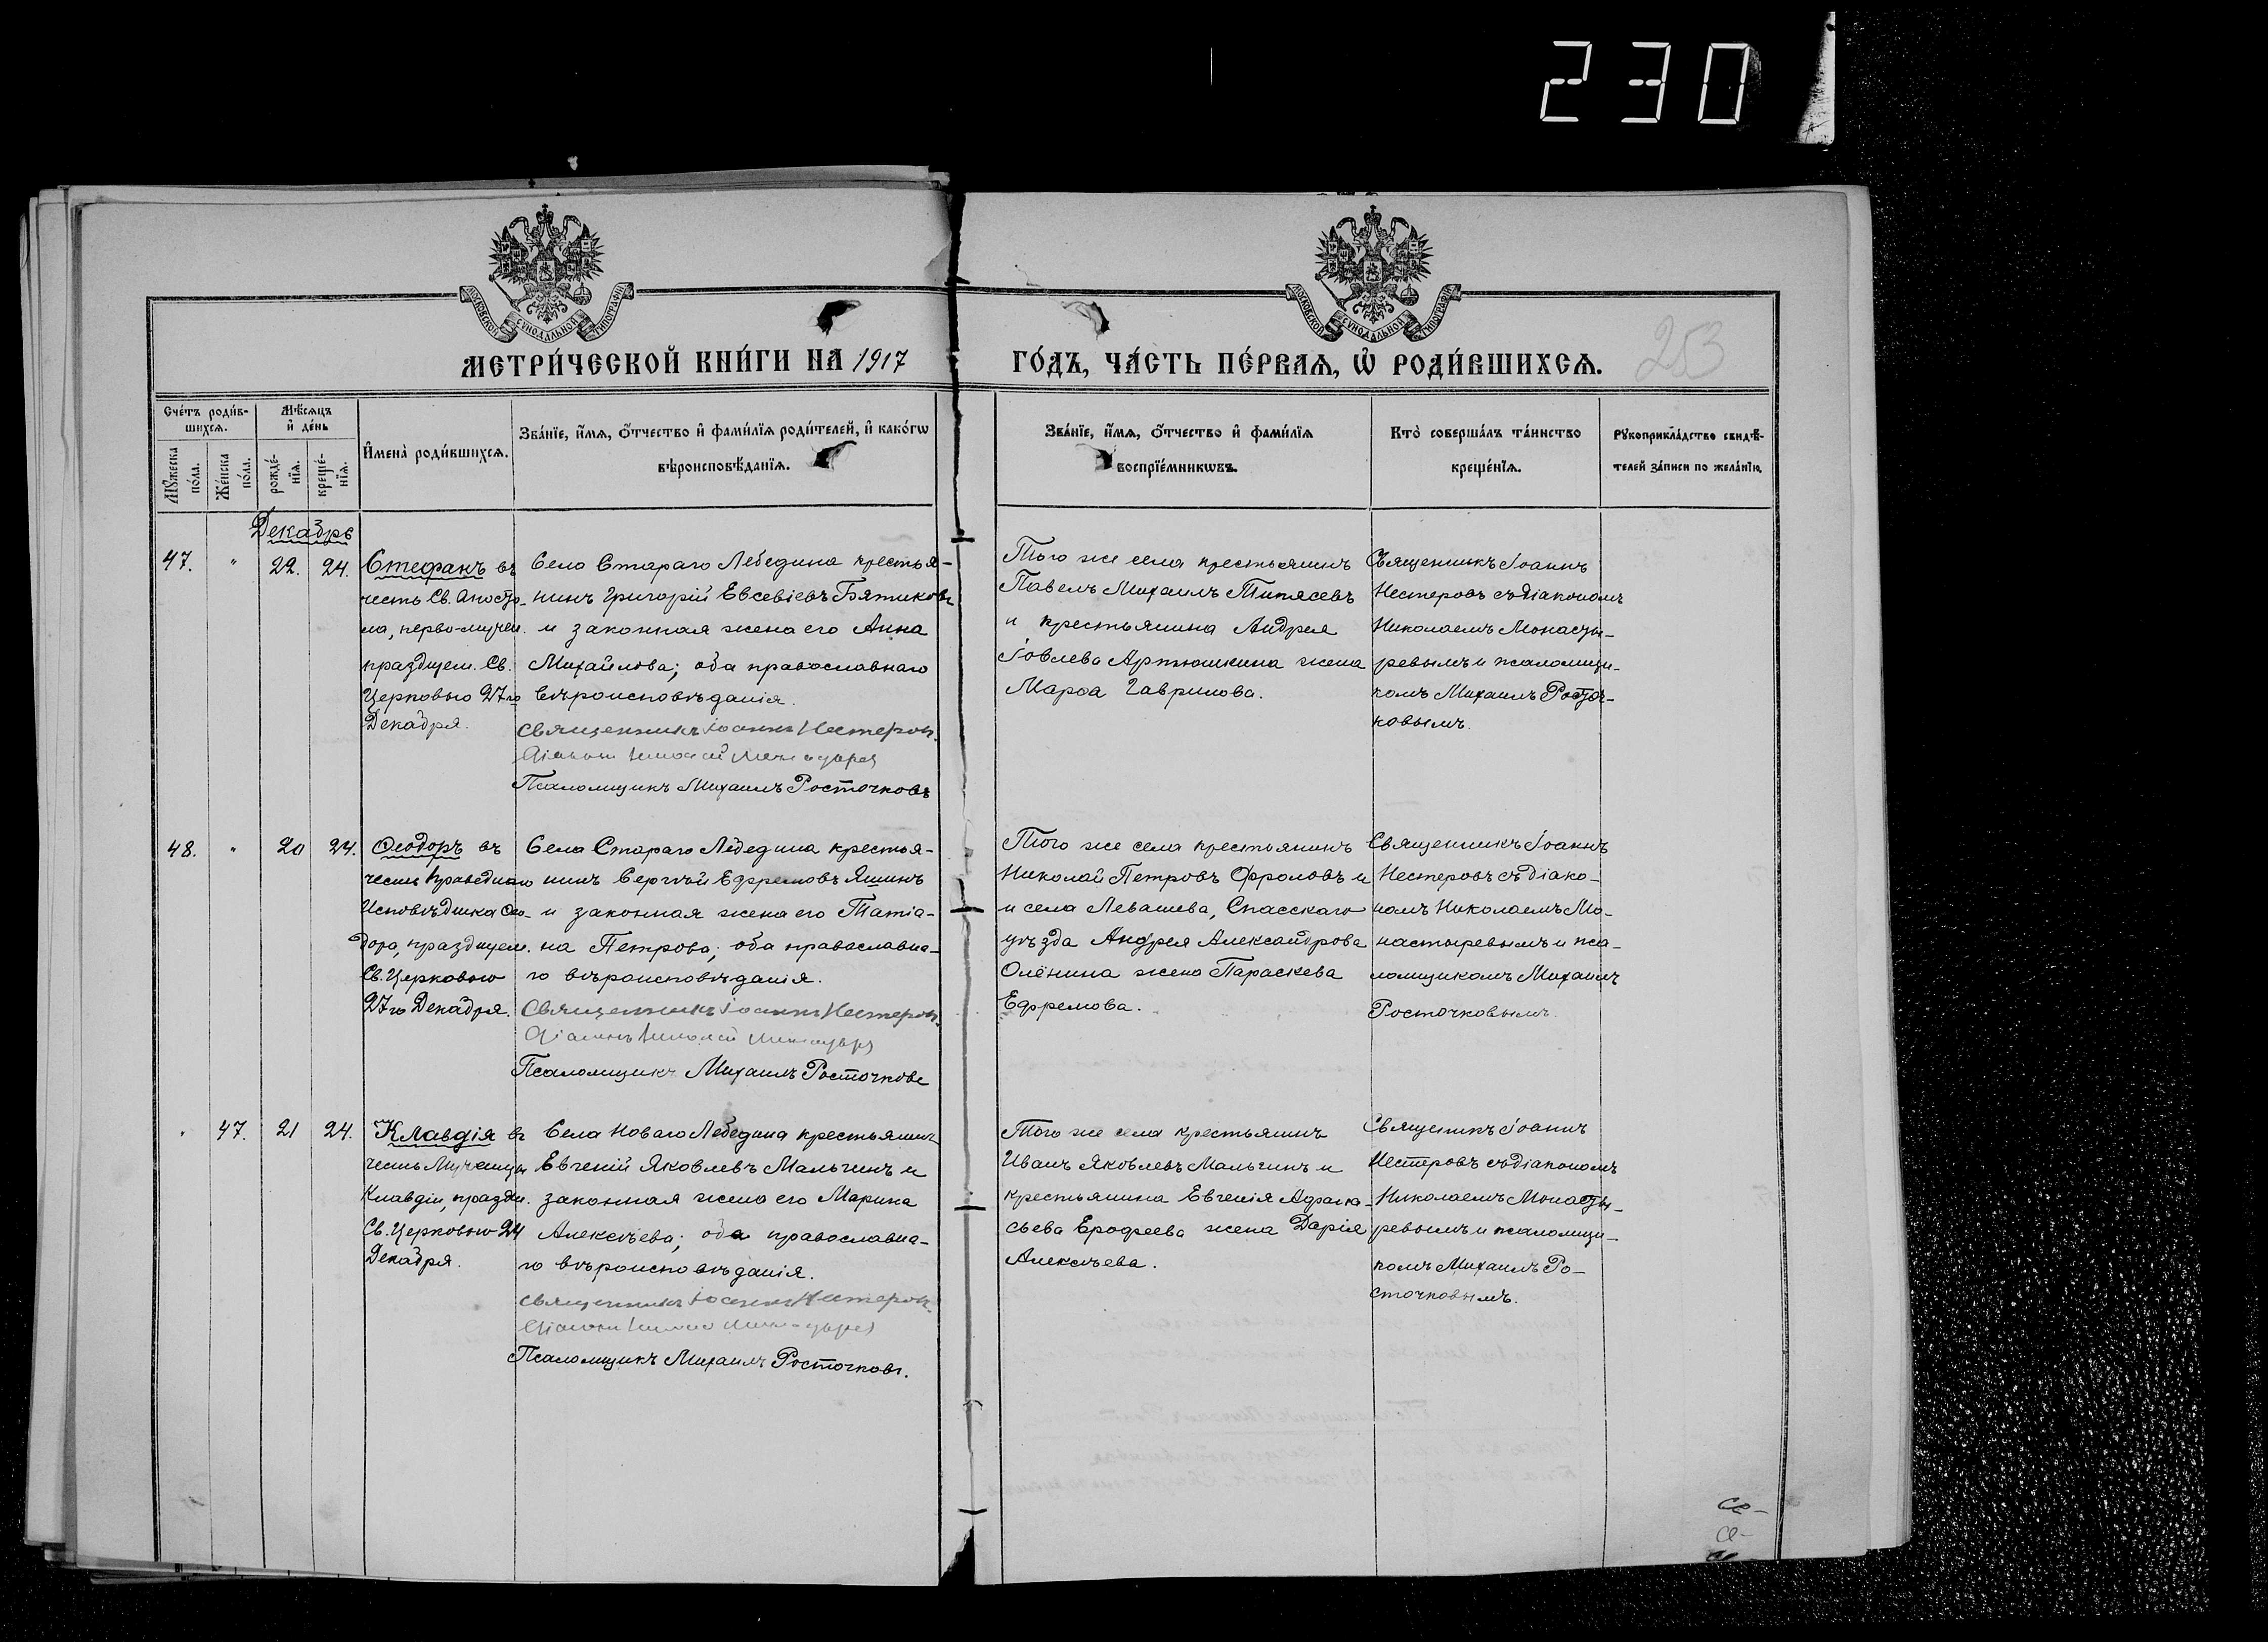 230
МОСКОВСКОЙ СѴНОДАЛЬНОЙ ТИПОГРАФІИ
МОСКОВСКОЙ СѴНОДАЛЬНОЙ ТИПОГРАФІИ
МЕТРИ́ЧЕСКОЙ КНИ́ГИ НА 1917 ГО́ДЪ, ЧА́СТЬ ПЕ́РВАѦ, Ѡ҆ РОДИ́ВШИХСѦ.
253
Сче́тъ роди́в-
шихсѧ.
Мѣ́сѧцъ
и҆ де́нь
Мꙋ́жеска
по́ла.
Же́нска
по́ла.
рожде́-
нїѧ.
креще́-
нїѧ.
И҆мена̀ роди́вшихсѧ.
Зва́нїе, и҆́мѧ, ѻ҆́тчество и҆ фами́лїѧ роди́телей, и҆ како́гѡ
вѣроисповѣ́данїѧ.
Зва́нїе, и҆́мѧ, ѻ҆́тчество и҆ фами́лїѧ
воспрїе́мникѡвъ.
Кто̀ соверша́лъ та́инство
креще́нїѧ.
Рꙋкоприкла́дство свидѣ́-
телей за́писи по жела́нїю.
Декабрь
47. " 22. 24.
Стефанъ въ
честь Св. Апосто-
ла, перво-мучен.
празднуем. Св.
Церковью 27го
Декабря.
Села Стараго Лебедина крестья-
нинъ Григорій Евсевіевъ Бятиковъ
и законная жена его Анна
Михайлова; оба православнаго
вѣроисповѣданія.
Священникъ Іоаннъ Нестеровъ.
Діаконъ Николай
Псаломщикъ Михаилъ Росточковъ
Того же села крестьянинъ
Павелъ Михаилъ Типясевъ
и крестьянина Андрея
Іовлева Артюшкина жена
Марѳа Гаврилова.
Священникъ Іоаннъ
Нестеровъ съ діакономъ
Николаемъ Монасты-
ревымъ и псаломщи-
комъ Михаилъ Росточ-
ковымъ.
48. " 20 24.
Ѳеодоръ въ
честь Праведнаго
Исповѣдника Ѳео-
дора, празднуем.
Св. Церковью
27го Декабря.
Села Стараго Лебедина крестья-
нинъ Сергѣй Ефремовъ Яшинъ
и законная жена его Татіа-
на Петрова; оба православна-
го вѣроисповѣданія.
Священникъ Іоаннъ Нестеровъ.
Діаконъ Николай
Псаломщикъ Михаилъ Росточковъ
Того же села крестьянинъ
Николай Петровъ Фроловъ и
и села Левашева, Спасскаго
уѣзда Андрея Александрова
Олёнина жена Параскева
Ефремова.
Священникъ Іоаннъ
Нестеровъ съ діако-
номъ Николаемъ Мо-
настыревымъ и пса-
ломщикомъ Михаилъ
Росточковымъ.
" 47. 21 24.
Клавдія въ
честь Мученицы
Клавдіи, праздн.
Св. Церковью 24
Декабря.
Села Новаго Лебедина крестьянинъ
Евгеній Яковлевъ Мальгинъ и
законная жена его Марина
Алексѣева; оба православна-
го вѣроисповѣданія.
Священникъ Іоаннъ Нестеровъ.
Діаконъ
Псаломщикъ Михаилъ Росточковъ.
Того же села крестьянинъ
Иванъ Яковлевъ Мальгинъ и
крестьянина Евгенія Афана-
сьева Ерофеева жена Дарія
Алексѣева.
Священникъ Іоаннъ
Нестеровъ съ діакономъ
Николаемъ Монасты-
ревымъ и псаломщи-
комъ Михаилъ Ро-
сточковымъ.